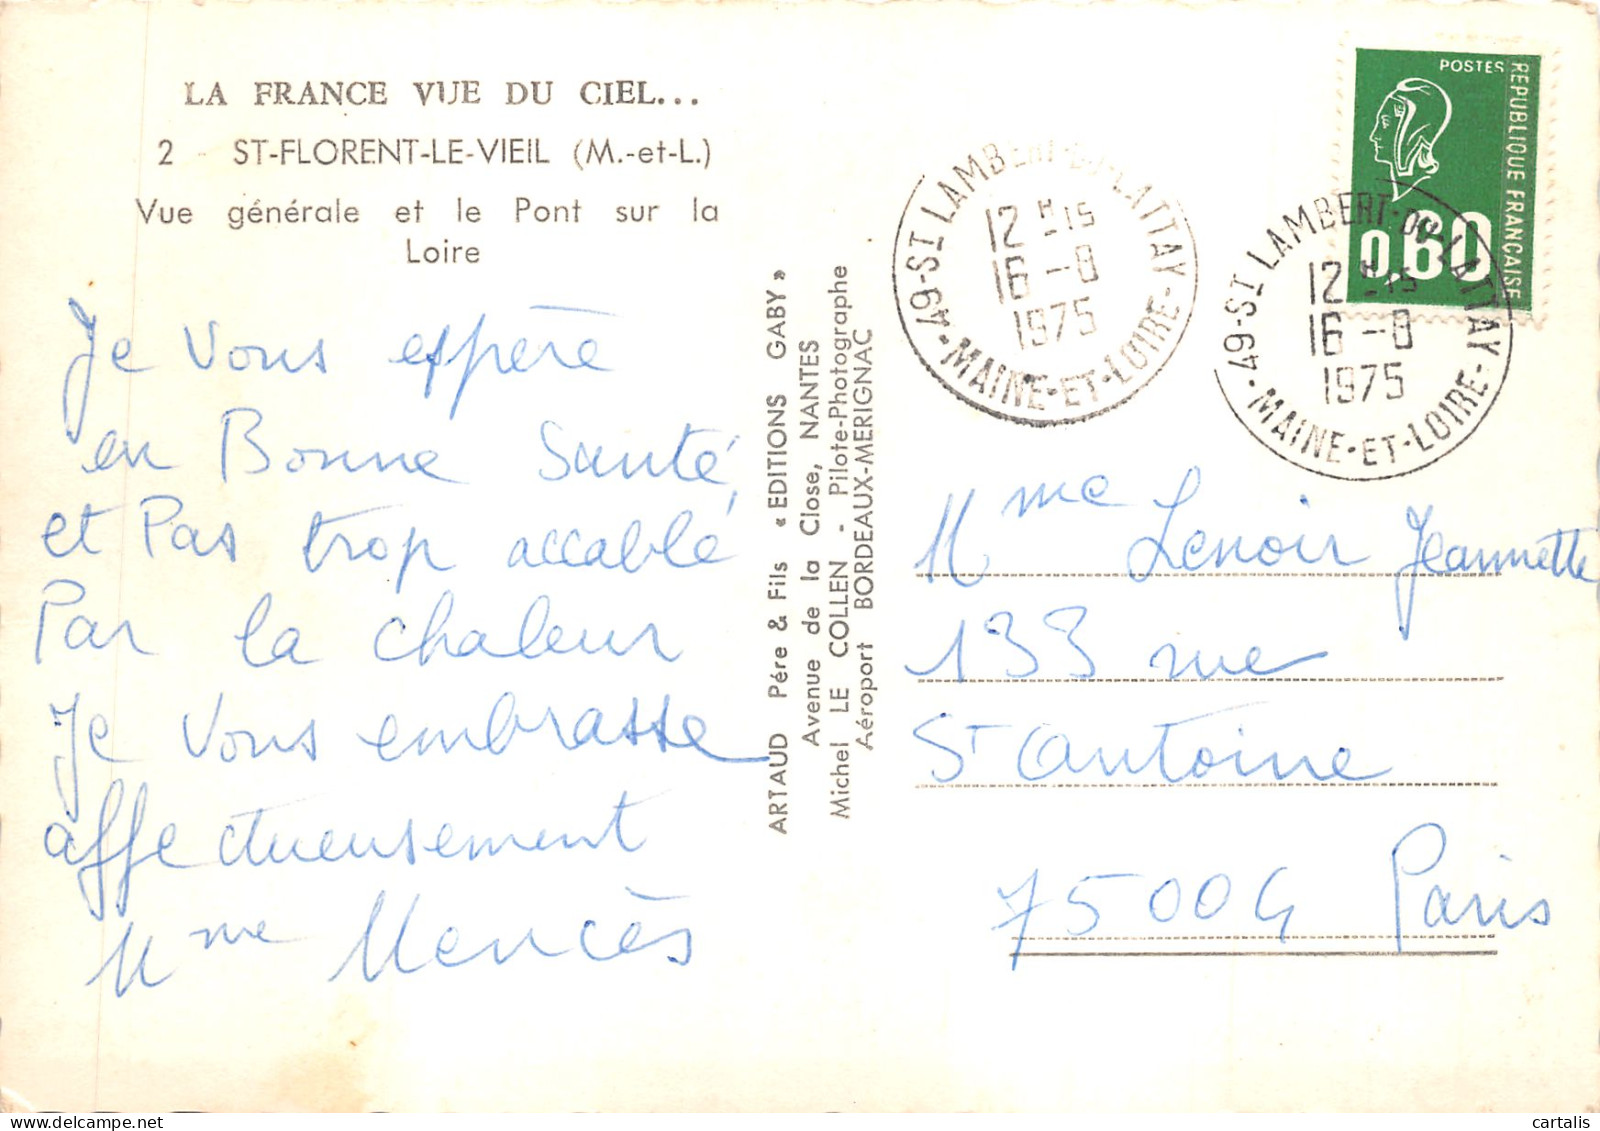 LA FRANCE VUE DU CIEL...
2 - ST-FLORENT-LE-VIEIL (M.-et-L.)
Vue générale et le Pont sur la
Loire
Je vous espère
en Bonne Santé,
et Pas trop accablé
Par la chaleur
Je vous embrasse
affectueusement
Mme Mencès
ARTAUD Père & Fils « EDITIONS GABY »
Avenue de la Close, NANTES
Michel LE COLLEN - Pilote-Photographe
Aéroport BORDEAUX-MERIGNAC
49-ST LAMBERT-DU-LATTAY
12 H 15
16-8
1975
MAINE-ET-LOIRE
POSTES
REPUBLIQUE FRANÇAISE
0,60
49-ST LAMBERT-DU-LATTAY
12 H 15
16-8
1975
MAINE-ET-LOIRE
Mme Lenoir Jeannette
133 rue
St Antoine
75004 Paris
cartalis